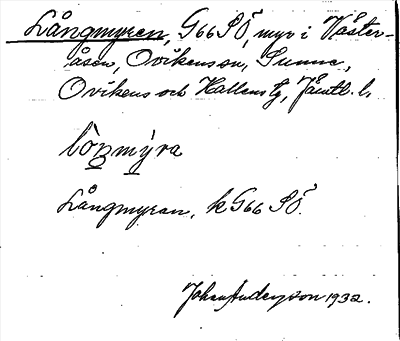 Långmyren, G66 SÖ, myr i Väster-
åsen, Ovikens sn, Sunne,
Ovikens och Hallens tg, Jämtl. l.
lòŋmýra
Långmyran, k G66 SÖ.
Johan Anderzson 1932.